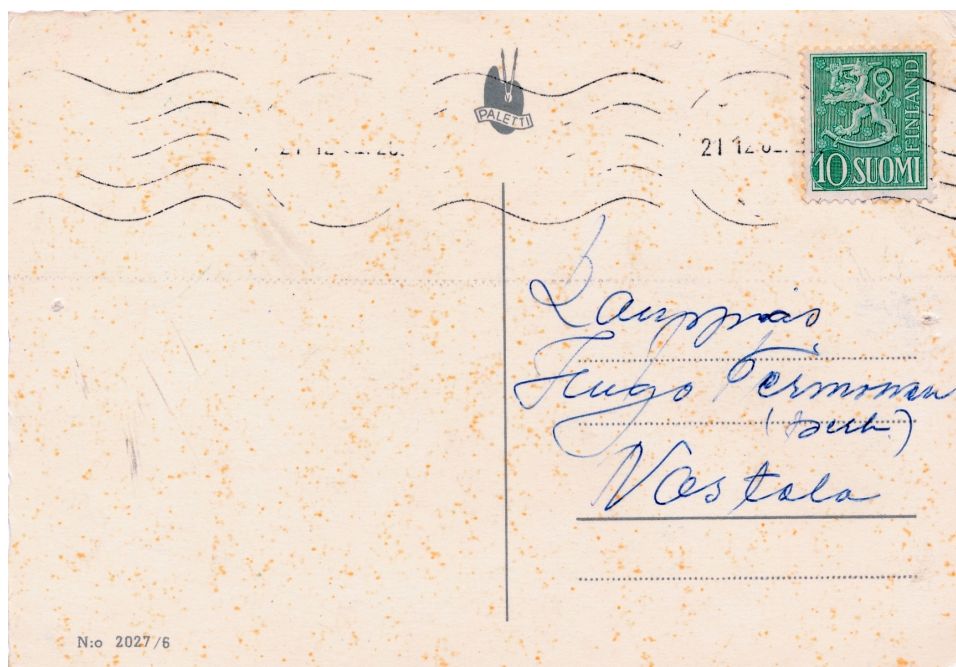 PALETTI
21 12
21 12
FINLAND
10 SUOMI
Kauppias
Hugo Termonen
Vastola
N:o 2027/6